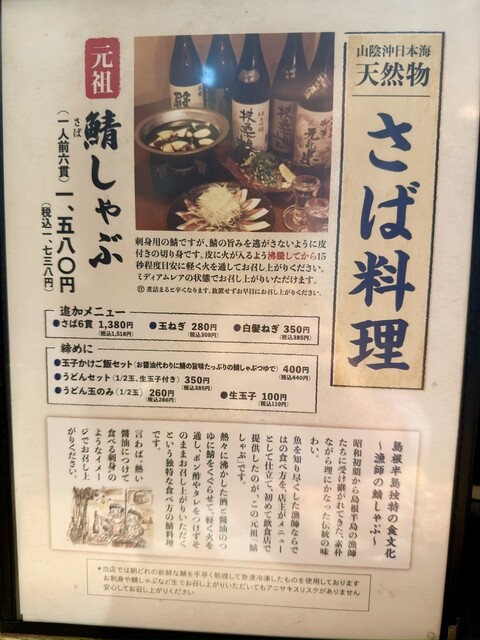 山陰沖日本海
天然物
さば料理
元祖
鯖しゃぶ
さば
(一人前六貫)一、五八〇円
(税込一、七三八円)
刺身用の鯖ですが、鯖の旨みを逃がさないように皮
付きの切り身です。皮に火が入るよう沸騰してから15
秒程度目安に軽く火を通してお召し上がりください。
ミディアムレアの状態でお召し上がりいただけます。
煮詰まると辛くなります。放置せずお早目にお召し上がりください。
追加メニュー
●さば6貫 1,380円 ●玉ねぎ 280円 ●白髪ねぎ 350円
(税込1,518円) (税込308円) (税込385円)
締めに
●玉子かけご飯セット(お醤油代わりに鯖の旨味たっぷりの鯖しゃぶつゆで) 400円
(税込440円)
●うどんセット(1/2玉、生玉子付き) 350円
(税込385円)
●うどん玉のみ(1/2玉) 260円 ●生玉子 100円
(税込286円) (税込110円)
島根半島独特の食文化
～漁師の鯖しゃぶ～
昭和初期から島根半島の漁師
たちに受け継がれてきた、素朴
ながら理にかなった伝統の味
わい。
魚を知り尽くした漁師ならで
はの食べ方を、店主がメニュー
として仕立て、初めて飲食店で
提供したのが、この元祖「鯖
しゃぶ」です。
熱々に沸かした酒と醤油のつ
ゆに鯖をくぐらせて、軽く火を
通し、ポン酢やタレをつけず、そ
のままお召し上がりいただく
という独特な食べ方の鯖料理
です。
言わば、熱い
醤油につけて
食べる刺身の
ようなイメー
ジでお召し上
がりください。
*当店では朝どれの新鮮な鯖を手早く処理して急速冷凍したものを使用しております
お刺身や鯖しゃぶなど生でお召し上がりいただいてもアニサキスリスクがありません
安心してお召し上がりください